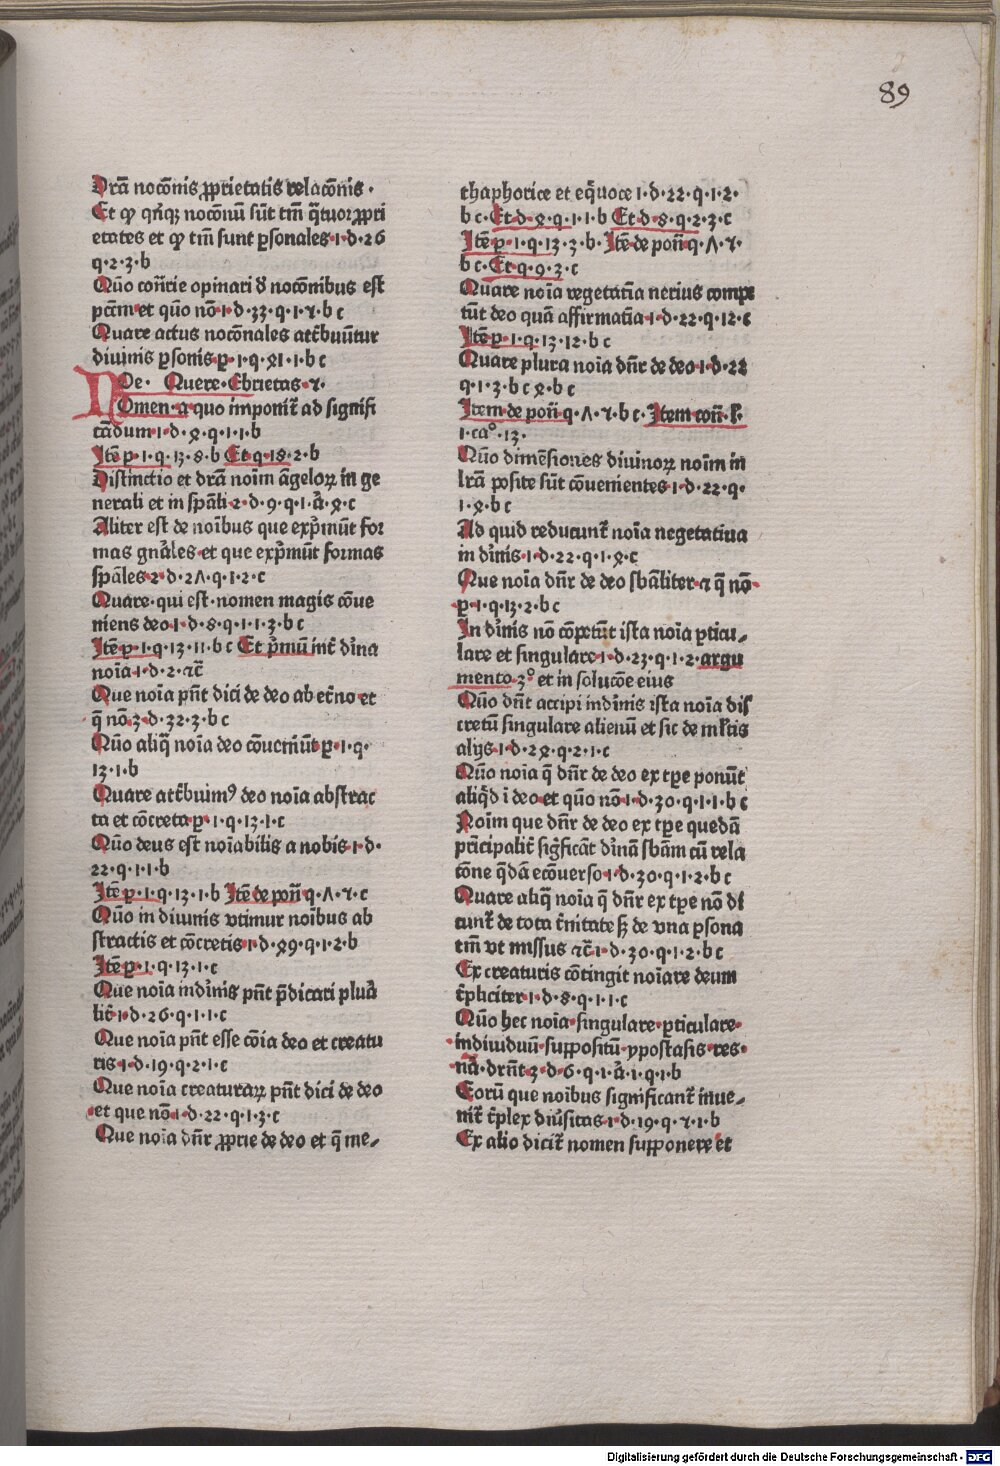 89
Drã nocõnis ꝓprietatis relacõnis·
Et ꝙ qñqꝫ nocõnũ sũt tm̃ q̃tuor ꝓpri
etates et ꝙ tm̃ sunt ꝑsonales·1·d·26
q·2·3·b
Qũo cõñrie opinari d̕ nocõnibus est
pctm̃·et qũo nõ·1·d·33·q·1·ꝛ·b c
Quare actus nocõnales attͥbuũtur
diuinis ꝑsonis·ꝑ·1·q·ꝝ1·1·b c
NOe· Quere·Ebrietas·ꝛ·
Omen·a quo imponit̃ ad signifi
cãdum·1·d·ꝝ·q·1·1·b
Itẽ·ꝑ·1·q·13·8·b Et q·18·2·b
Distinctio et drãm noim ãgeloꝝ in ge
nerali et in spãli·2·d·9·q·1·ã·ꝝ·c
Aliter est de noĩbus que exp̃mũt for
mas gnãles·et que exp̃mũt formas
spãles·2·d·2ꞥ·q·1·2·c
Quare·qui est·nomen magis cõue
niens deo·1·d·8·q·1·1·3·b c
Itẽ·ꝑ·1·q·13·11·b c Et p̃mũ int̃ dĩna
noĩa·1·d·2·ꝛc̃
Que noĩa pñt dici de deo ab et̃no·et
q̃ nõ·3·d·32·3·b c
Qũo aliq̃ noĩa deo cõueniũt·ꝑ·1·q·
13·1·b
Quare attͥbuimꝰ deo noĩa abstrac
ta et cõcreta·ꝑ·1·q·13·1·c
Qũo deus est noĩabilis a nobis·1·d·
22·q·1·1·b
Itẽ·ꝑ·1·q·13·1·b Itẽ de poñ q·ꞥ·ꝛ·c
Qũo in diuinis vtimur noĩbus ab
stractis et cõcretis·1·d·ꝝ9·q·1·2·b
Itẽ·ꝑ·1·q·13·1·c
Que noĩa indĩnis pñt p̃dicari plurã
lit̃·1·d·26·q·1·1·c
Que noĩa pñt esse cõia deo et creatu
ris·1·d·19·q·2·1·c
Que noĩa creaturaꝝ pñt dici de deo
et que nõ·1·d·22·q·1·3·c
Que noĩa dñr ꝓprie de deo et q̃ me⸗
thaphorice et eq̃uoce 1·d·22·q·1·2·
b c·Et·d·ꝝ·q·1·1·b Et·d·8·q·2·3·c
Itẽ·ꝑ·1·q·13·3·b·Itẽ de poñ q·ꞥ·ꝛ·
b c·Et·q·9·3·c
Quare noĩa negetatĩa uerius compe
tũt deo quã affirmatĩa·1·d·22·q·12·c
Itẽ·ꝑ·1·q·13·12·b c
Quare plura noĩa dñr de deo·1·d·22
q·1·3·b c ꝝ·b c
Item·de poñ q·ꞥ·ꝛ·b c·Item coñ·l̃·
1·ca°·13·
Qũo dimẽsiones diuinoꝝ noĩm in
lr̃a posite sũt cõuenientes·1·d·22·q·
1·ꝝ·b c
Ad quid reducunt̃ noĩa negetatiua
in dĩnis·1·d·22·q·1·ꝝ·c
Que noĩa dñr de deo sbãliter·ꝛ q̃ nõ·
ꝑ·1·q·13·2·b c
In dĩnis nõ cõpetũt ista noĩa ꝑticu⸗
lare et singulare·1·d·23·q·1·2·argu
mento·3° et in solucõe eius
Qũo dñt accipi indĩnis ista noĩa dis
cretũ singulare alienũ et sic de ml̃tis
alijs·1·d·2ꝝ·q·2·1·c
Qũo noĩa q̃ dñr de deo ex tꝑe ponũt
aliq̃d ĩ deo·et qũo nõ·1·d·30·q·1·1·b c
Noĩm que dñr de deo ex tꝑe quedã
pr̃icipalit̃ sig̃ficãt dĩnã sbãm cũ rela
cõne q̃dã ecõuerso·1·d·30·q·1·2·b c
Quare aliq̃ noĩa q̃ dñr ex tꝑe nõ di
cunt̃ de tota t̃nitate sꝫ de vna ꝑsona
tm̃ vt missus ꝛc̃·1·d·30·q·1·2·b c
Ex creaturis cõtingit noĩare deum
t̃pliciter·1·d·8·q·1·1·c
Qũo hec noĩa·singulare·ꝑticulare·
indiuiduũ·suppositũ·ypostasis·res·
nã·drñt·3·d·6·q·1·ã·1·q·1·b
Eorũ que noĩbus significant̃ inue⸗
nit̃ t̃plex diũsitas·1·d·19·q·ꝛ·1·b
Ex alio dicit̃ nomen supponere et
Digitalisierung gefördert durch die Deutsche Forschungsgemeinschaft · DFG